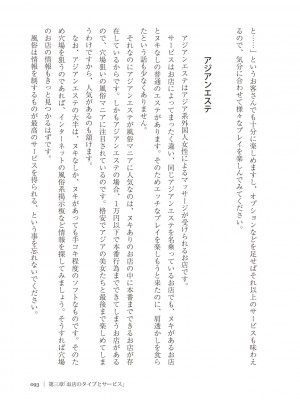 と……」というお客さんでも十分に楽しめますし、オプションなどを足せばそれ以上のサービスも味わえ
るので、気分に合わせて様々なプレイを楽しんでみてください。
アジアンエステ
アジアンエステはアジア系外国人女性によるマッサージが受けられるお店です。
サービスはお店によってまったく違い、同じアジアンエステを名乗っているお店でも、ヌキがあるお店
とヌキなしの普通のエステがあります。そのためエッチなプレイを楽しもうと来たのに、肩透かしを食ら
たという話も少なくありません。
それなのにアジアンエステが風俗マニアに人気なのは、ヌキありのお店の中に本番までできるお店が存
在しているからです。しかもアジアンエステの場合、1万円以下で本番行為までできてしまうお店がある
ので、穴場狙いの風俗マニアに注目されているのです。格安でアジアの美女たちと最後まで楽しめてしま
うわけですから、人気があるのも頷けます。
なお、アジアンエステの大半は、ヌキなしか、ヌキがあっても手コキ程度のソフトなものです。ですか
ら穴場を狙うのであれば、インターネットの風俗系掲示板など情報を探してみましょう。そうすれば穴場
のお店の情報もきっと見つかるはずです。
風俗は情報を制するものが最高のサービスを得られる、という事を忘れないでください。
093 | 第三章「お店のタイプとサービス」